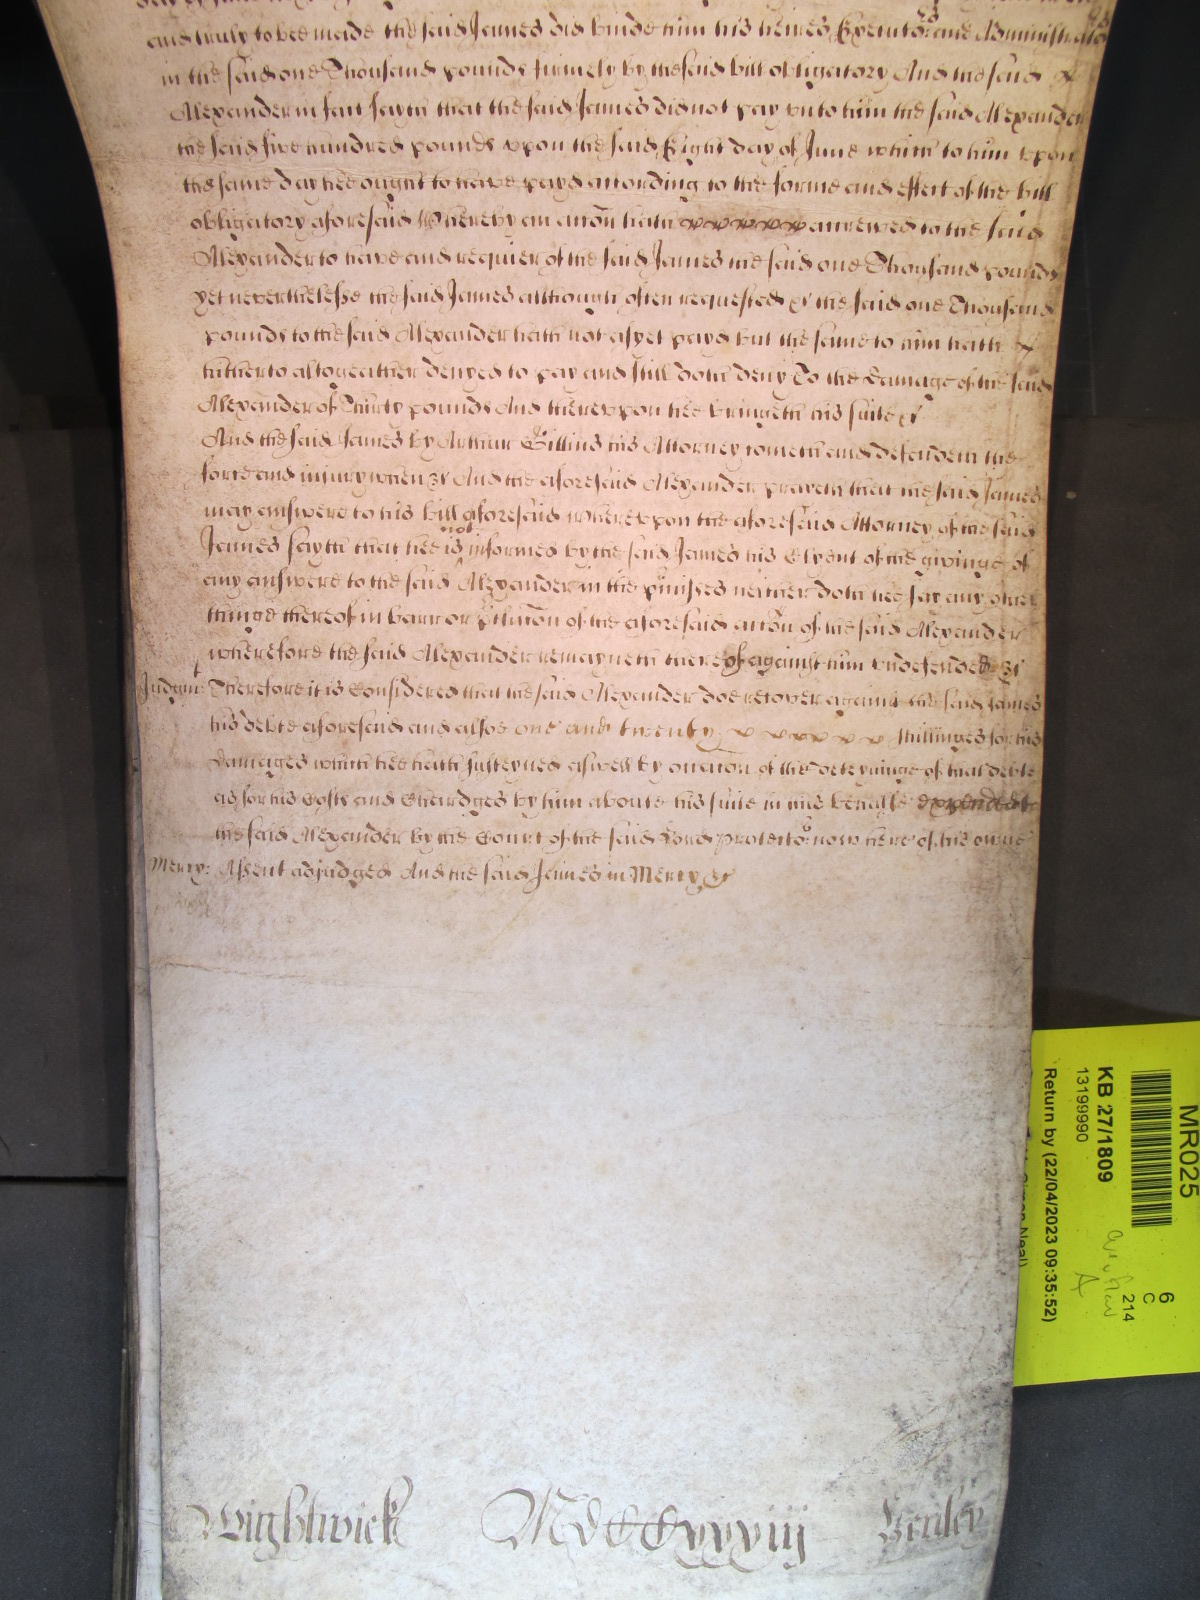 and truly to bee made the said James did binde him his heires Executors and Administrators
in the said one Thousand pounds firmely by the said bill obligatory And the said
Alexander in fact sayth that the said James did not pay unto him the said Alexander
the said five hundred pounds upon the said Eight day of June which to him upon
the same day hee ought to have payd according to the forme and effect of the bill
obligatory aforesaid Whereby an accon hath accrewed to the said
Alexander to have and requier of the said James the said one Thousand pounds
yet neverthelesse the said James allthough often requested &c the said one Thousand
pounds to the said Alexander hath not as yet payd but the same to him hath
hitherto altogeather denyed to pay and still doth deny To the damage of the said
Alexander of Thirty pounds And thereupon hee bringeth his suite &c
And the said James by Arthur Gillins his Attorney cometh and defendeth the
force and injury when &c And the aforesaid Alexander prayeth that the said James
may answere to his bill aforesaid whereupon the aforesaid Attorney of the said
James sayth that hee is not informed by the said James his Clyent of the givinge of
any answere to the said Alexander in the pmisses neither doth hee say any other
thinge thereof in barr or pclusion of the aforesaid accon of the said Alexander
wherefore the said Alexander remayneth thereof against him undefended &c
Judgmt Therefore it is Considered that the said Alexander doe recover against the said James
his debte aforesaid and alsoe one and twenty shillinges for his
damages which hee hath susteyned aswell by occacon of the deteyninge of that debte
as for his Costs and Chardges by him aboute his suite in this behalfe expended to
the said Alexander by the Court of the said Lord Protector now here of his owne
Mercy: Assent adjudged And the said James in Mercy &c
Wightwick MdCCxxxiij
MR025
KB 27/1809
13199990
Return by (22/04/2023 09:35:52)
6
C
214
A